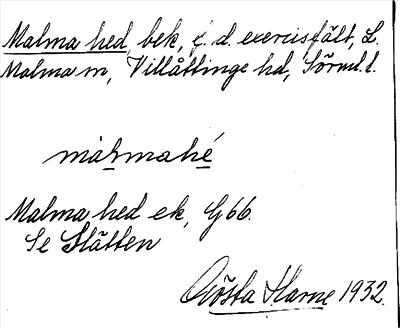 Malma hed, bek, f. d. exercisfält, L.
Malma sn, Villåttinge hd, Sörml. l.
Malma hed ek, G66.
Se Slätten
Gösta Harne 1932.